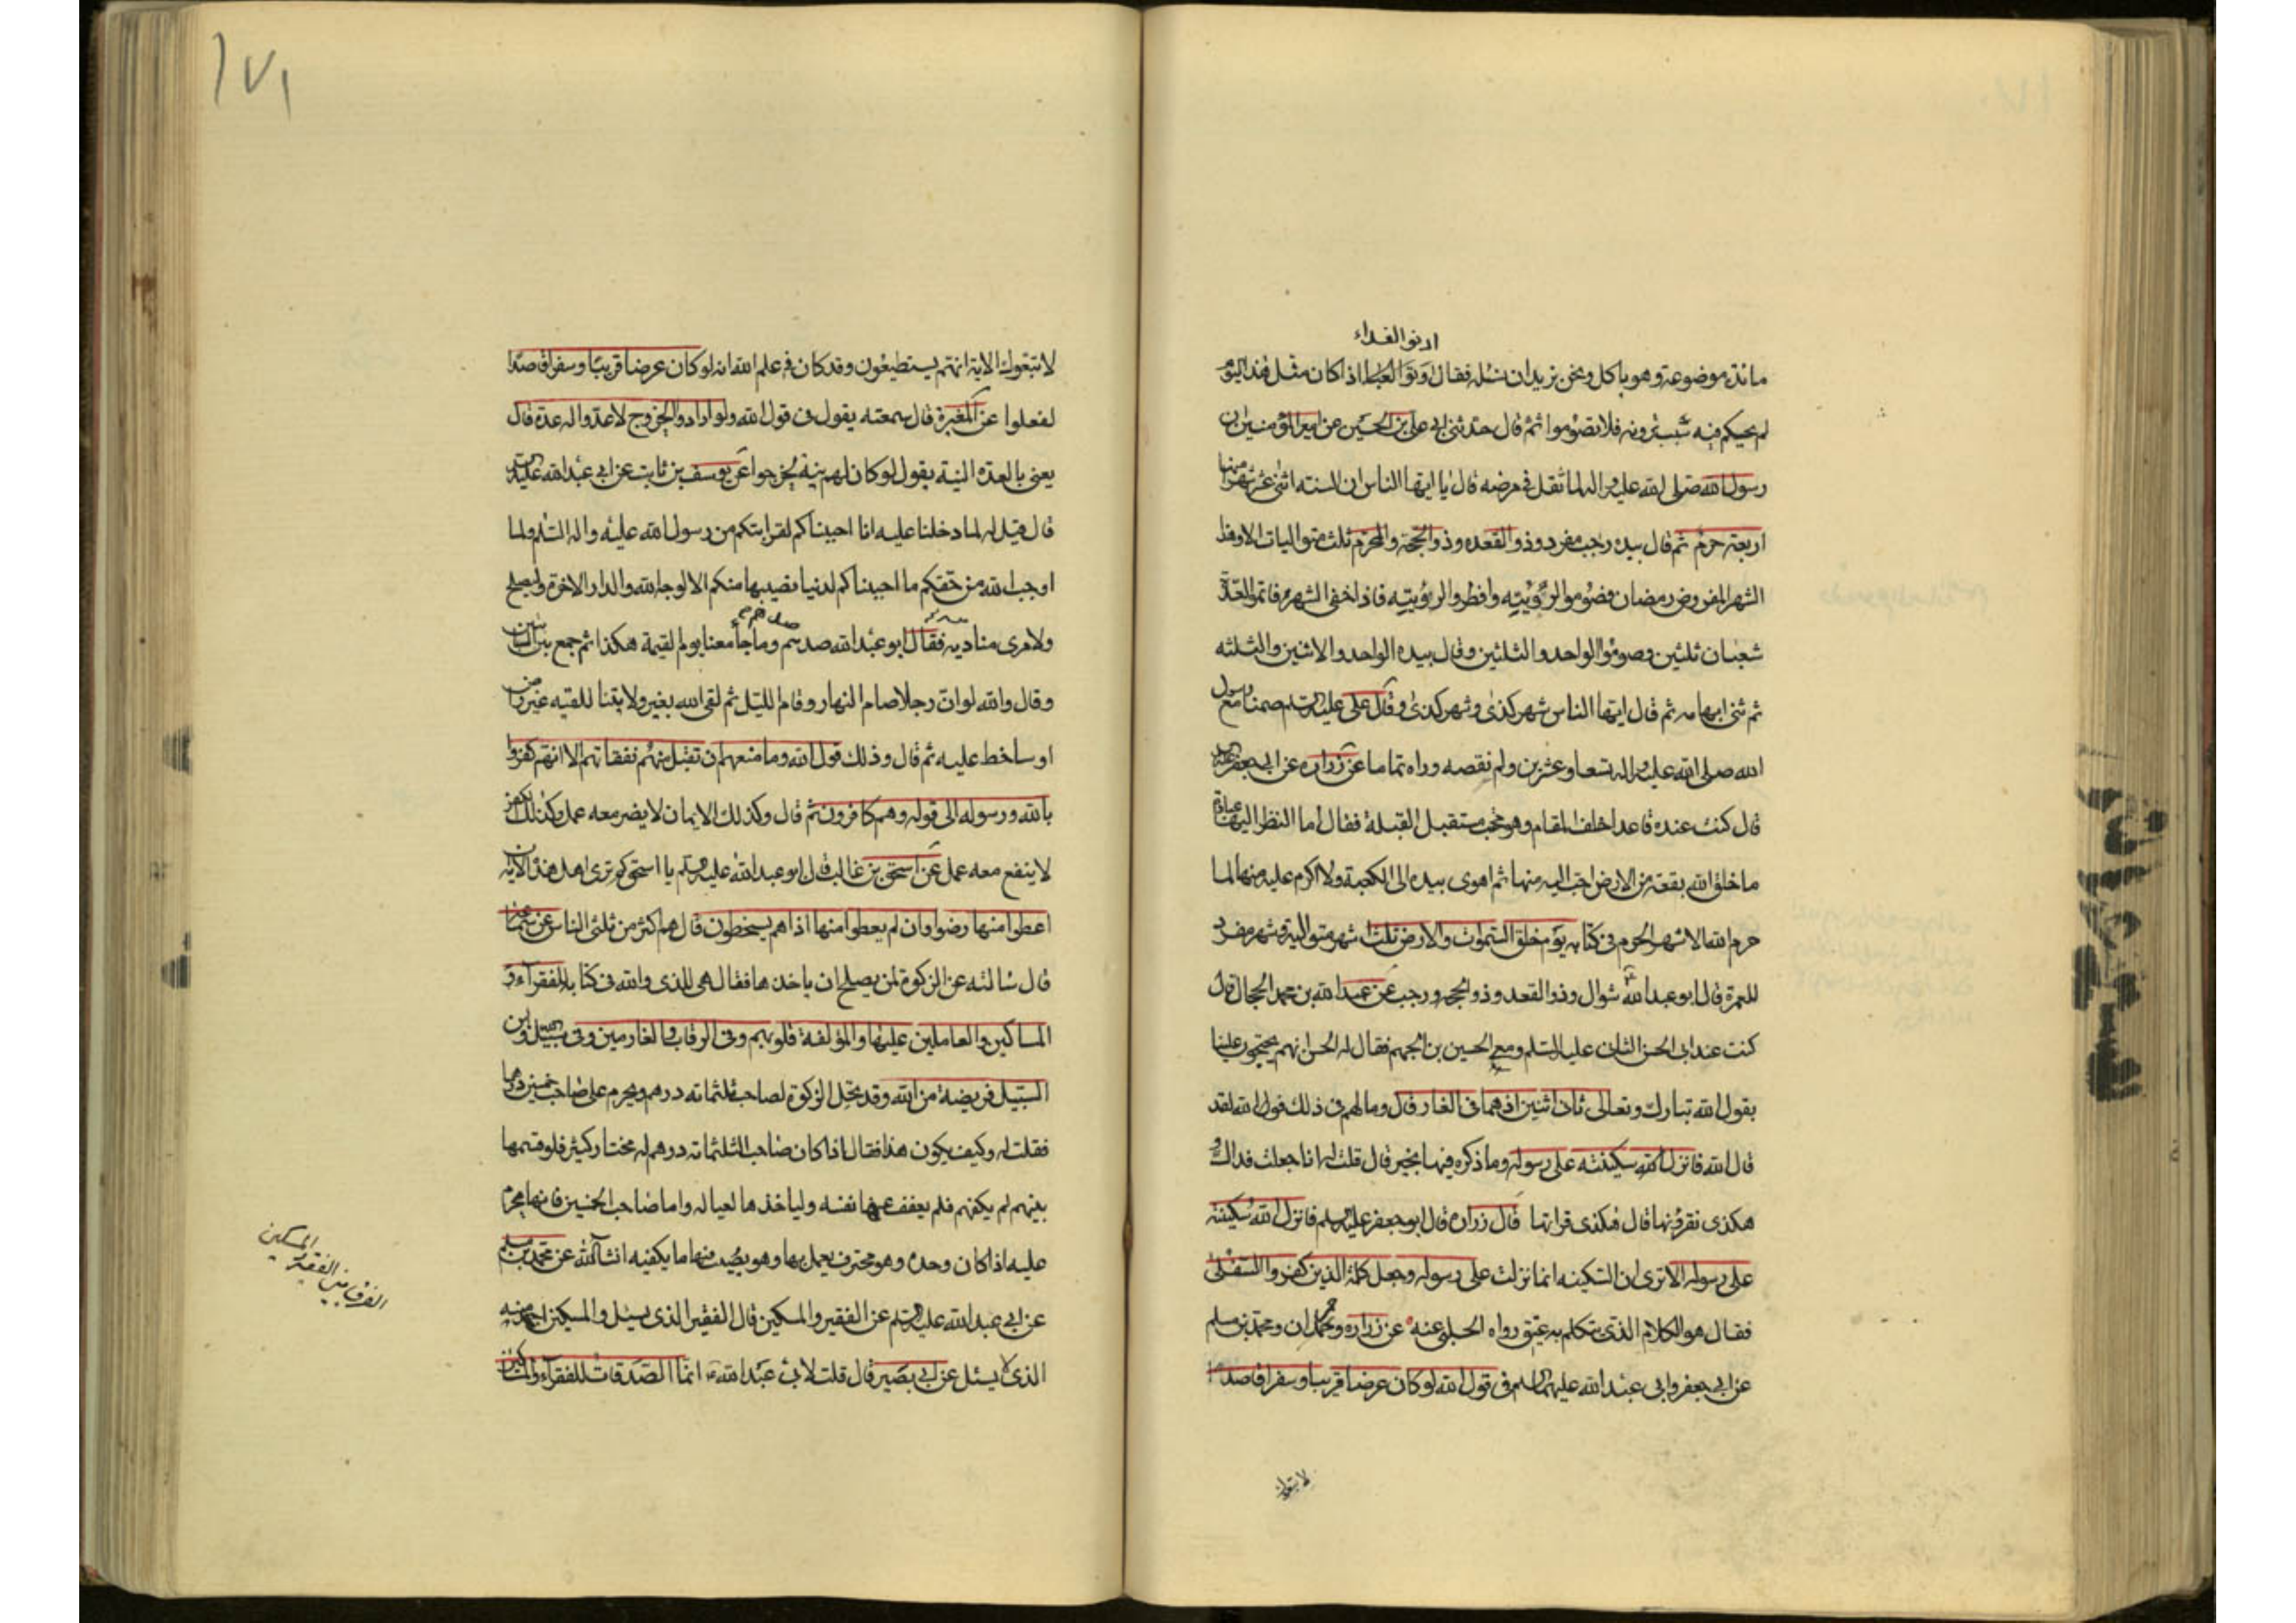 ادنو الغداء
مائدة موضوعة وهو ياكل ونحن نريد ان نسئله فقال ادنوا الغداء اذا كان مثل هذا اليوم
لم يحيكم فيه سبب ترونه فلا تصوموا ثم قال حدثنى ابى على بن الحسين عن امير المؤمنين ان
رسول الله صلى الله عليه واله لما ثقل فى مرضه قال يا ايها الناس ان السنه اثنى عشر شهرا منها
اربعة حرم ثم قال بيده رجب مفرد وذو القعده وذو الحجة والمحرم ثلث متواليات الا وهذا
الشهر المفروض رمضان فصوموا لرؤيته وافطروا لرؤيته فاذا خفى الشهر فاتموا العدة
شعبان ثلثين وصوموا الواحد والثلثين وقال بيده الواحد والاثنين والثلثه
ثم ثنى ابهامه ثم قال ايها الناس شهر كذى وشهر كذى وقال على عليه السلم صمنا مع رسول
الله صلى الله عليه واله تسعا وعشرين ولم نقصه وراه تماما عن زراره عن ابى جعفر عليه
قال كنت عنده قاعدا خلف المقام وهو محتب مستقبل القبلة فقال اما النظر اليها عبادة
ما خلق الله بقعة من الارض احب اليه منها ثم اهوى بيده الى الكعبة ولا اكرم عليه منها لها
حرم الله الاشهر الحرم فى كتابه يوم خلق السموات والارض ثلثة اشهر متوالية وشهر مفرد
للعمرة قال ابو عبد الله شوال وذو القعد وذو الحجه ورجب عن عبد الله بن محمد الحجال قال
كنت عند ابى الحسن الثانى عليه السلم ومعى الحسين بن الجهم فقال له الحسن انهم يحتجون علينا
بقول الله تبارك وتعالى ثانى اثنين اذ هما فى الغار قال وما لهم فى ذلك فوالله لقد
قال الله فانزل الله سكينته على رسوله وما ذكره فيها بخير قال قلت له انا جعلت فداك و
هكذى نقرؤنها قال هكذى قراتها قال زراره قال ابو جعفر عليه السلم فانزل الله سكينته
على رسوله الا ترى ان السكينه انما نزلت على رسوله وجعل كلمة الذين كفروا السفلى
فقال هو الكلام الذى تكلم به عتيق رواه الحلبى عنه عن زراره وحمران ومحمد بن مسلم
عن ابى جعفر وابى عبد الله عليهما السلم فى قول الله لو كان عرضا قريبا وسفرا قاصدا
لا تبعوك
١٧١
لاتبعوك الاية انهم يستطيعون وقد كان فى علم الله انه لو كان عرضا قريبا وسفرا قاصدا
لفعلوا عن المغيرة قال سمعته يقول فى قول الله ولو ارادوا الخروج لاعدوا له عدة قال
يعنى بالعدة النية يقول لو كان لهم نية لخرجوا عن يوسف بن ثابت عن ابى عبد الله عليه السلم
قال قيل له لما دخلنا عليه انا احببناكم لقرابتكم من رسول الله عليه واله السلم ولما
اوجب الله من حقكم ما احببناكم لدنيا نصيبها منكم الا لوجه الله والدار الاخرة وليصلح
ولامرى منا دينه فقال ابو عبد الله صدقتم وما جا معنا يوم القيمة هكذا ثم جمع بين السبابتين
وقال والله لو ان رجلا صام النهار وقام الليل ثم لقى الله بغير ولايتنا للقيه غير راض
او ساخط عليه ثم قال وذلك قول الله وما منعهم ان تقبل منهم نفقاتهم الا انهم كفروا
بالله ورسوله الى قوله وهم كافرون ثم قال وكذلك الايمان لا يضر معه عمل وكذلك الكفر
لا ينفع معه عمل عن اسحق بن غالب قال ابو عبد الله عليه السلم يا اسحق كم ترى اهل هذه الاية ان
اعطوا منها رضوا وان لم يعطوا منها اذا هم يسخطون قال هم اكثر من ثلثى الناس عن سماعة
قال سالته عن الزكوة لمن يصلح ان ياخذها فقال هى للذى والله فى كتابه للفقرآء و
المساكين والعاملين عليها والمؤلفة قلوبهم وفى الرقاب والغارمين وفى سبيل الله وابن
السبيل فريضة من الله وقد تحل الزكوة لصاحب ثلثمائه درهم ويحرم على صاحب خمسين درهما
فقلت له وكيف يكون هذا فقال اذا كان صاحب الثلثمائه درهم له مختار كثير فلو قسمها
بينهم لم يكفهم فلم يعفف عنها نفسه ولياخذها لعياله واما صاحب الخمسين فانها محرم
عليه اذا كان وحده وهو محترف يعمل بها وهو يصيب فيها ما يكفيه انشآء الله عن محمد بن مسلم
عن ابى عبد الله عليه السلم عن الفقير والمسكين قال الفقير الذى يسئل والمسكين اجهد منه
الذى لا يسئل عن ابى بصير قال قلت لابى عبد الله ع انما الصدقات للفقرآء والمساكين
الفرق بين الفقير المسكين